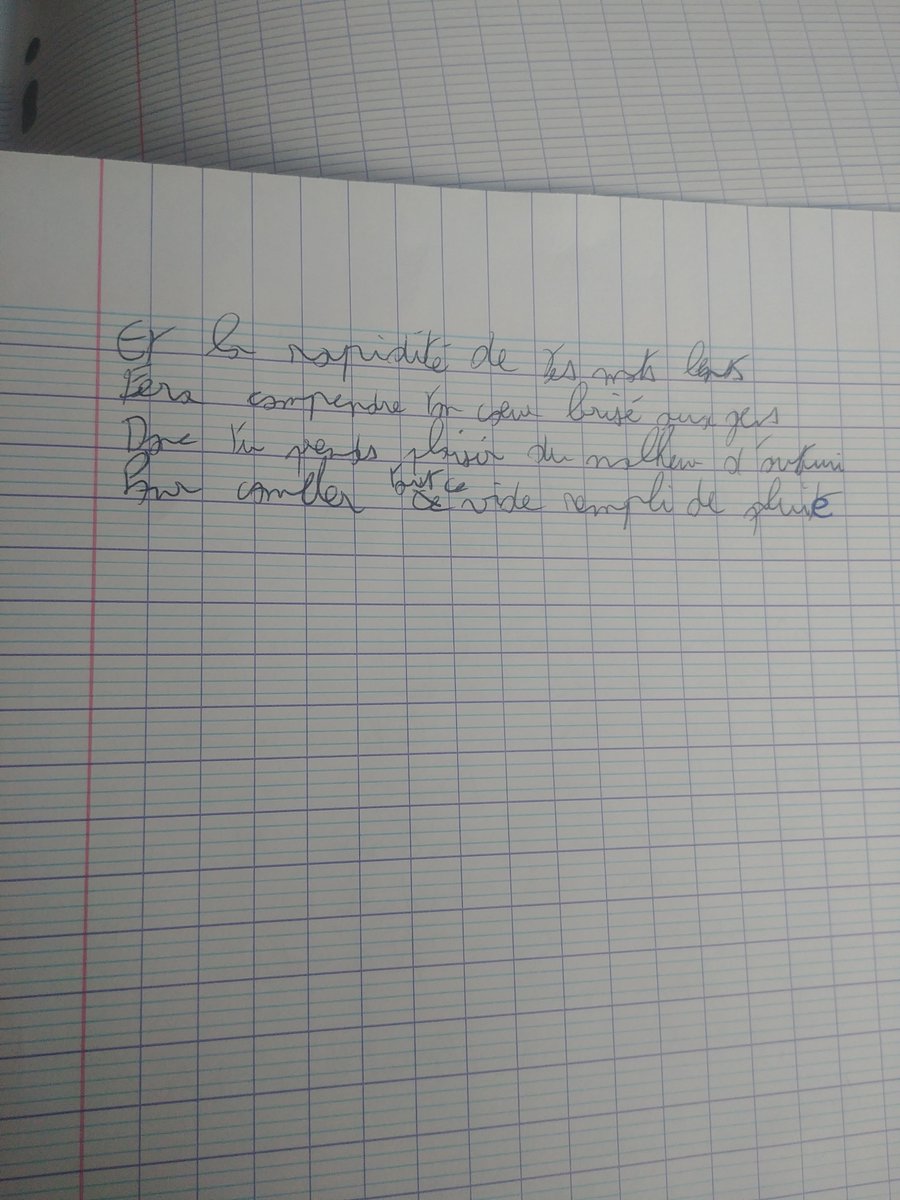 Et la rapidité de tes mots lents
Fera comprendre ton coeur brisé aux gens
Donc tu prends plaisir du malheur d'autrui
Pour combler tout ce vide rempli de pluie